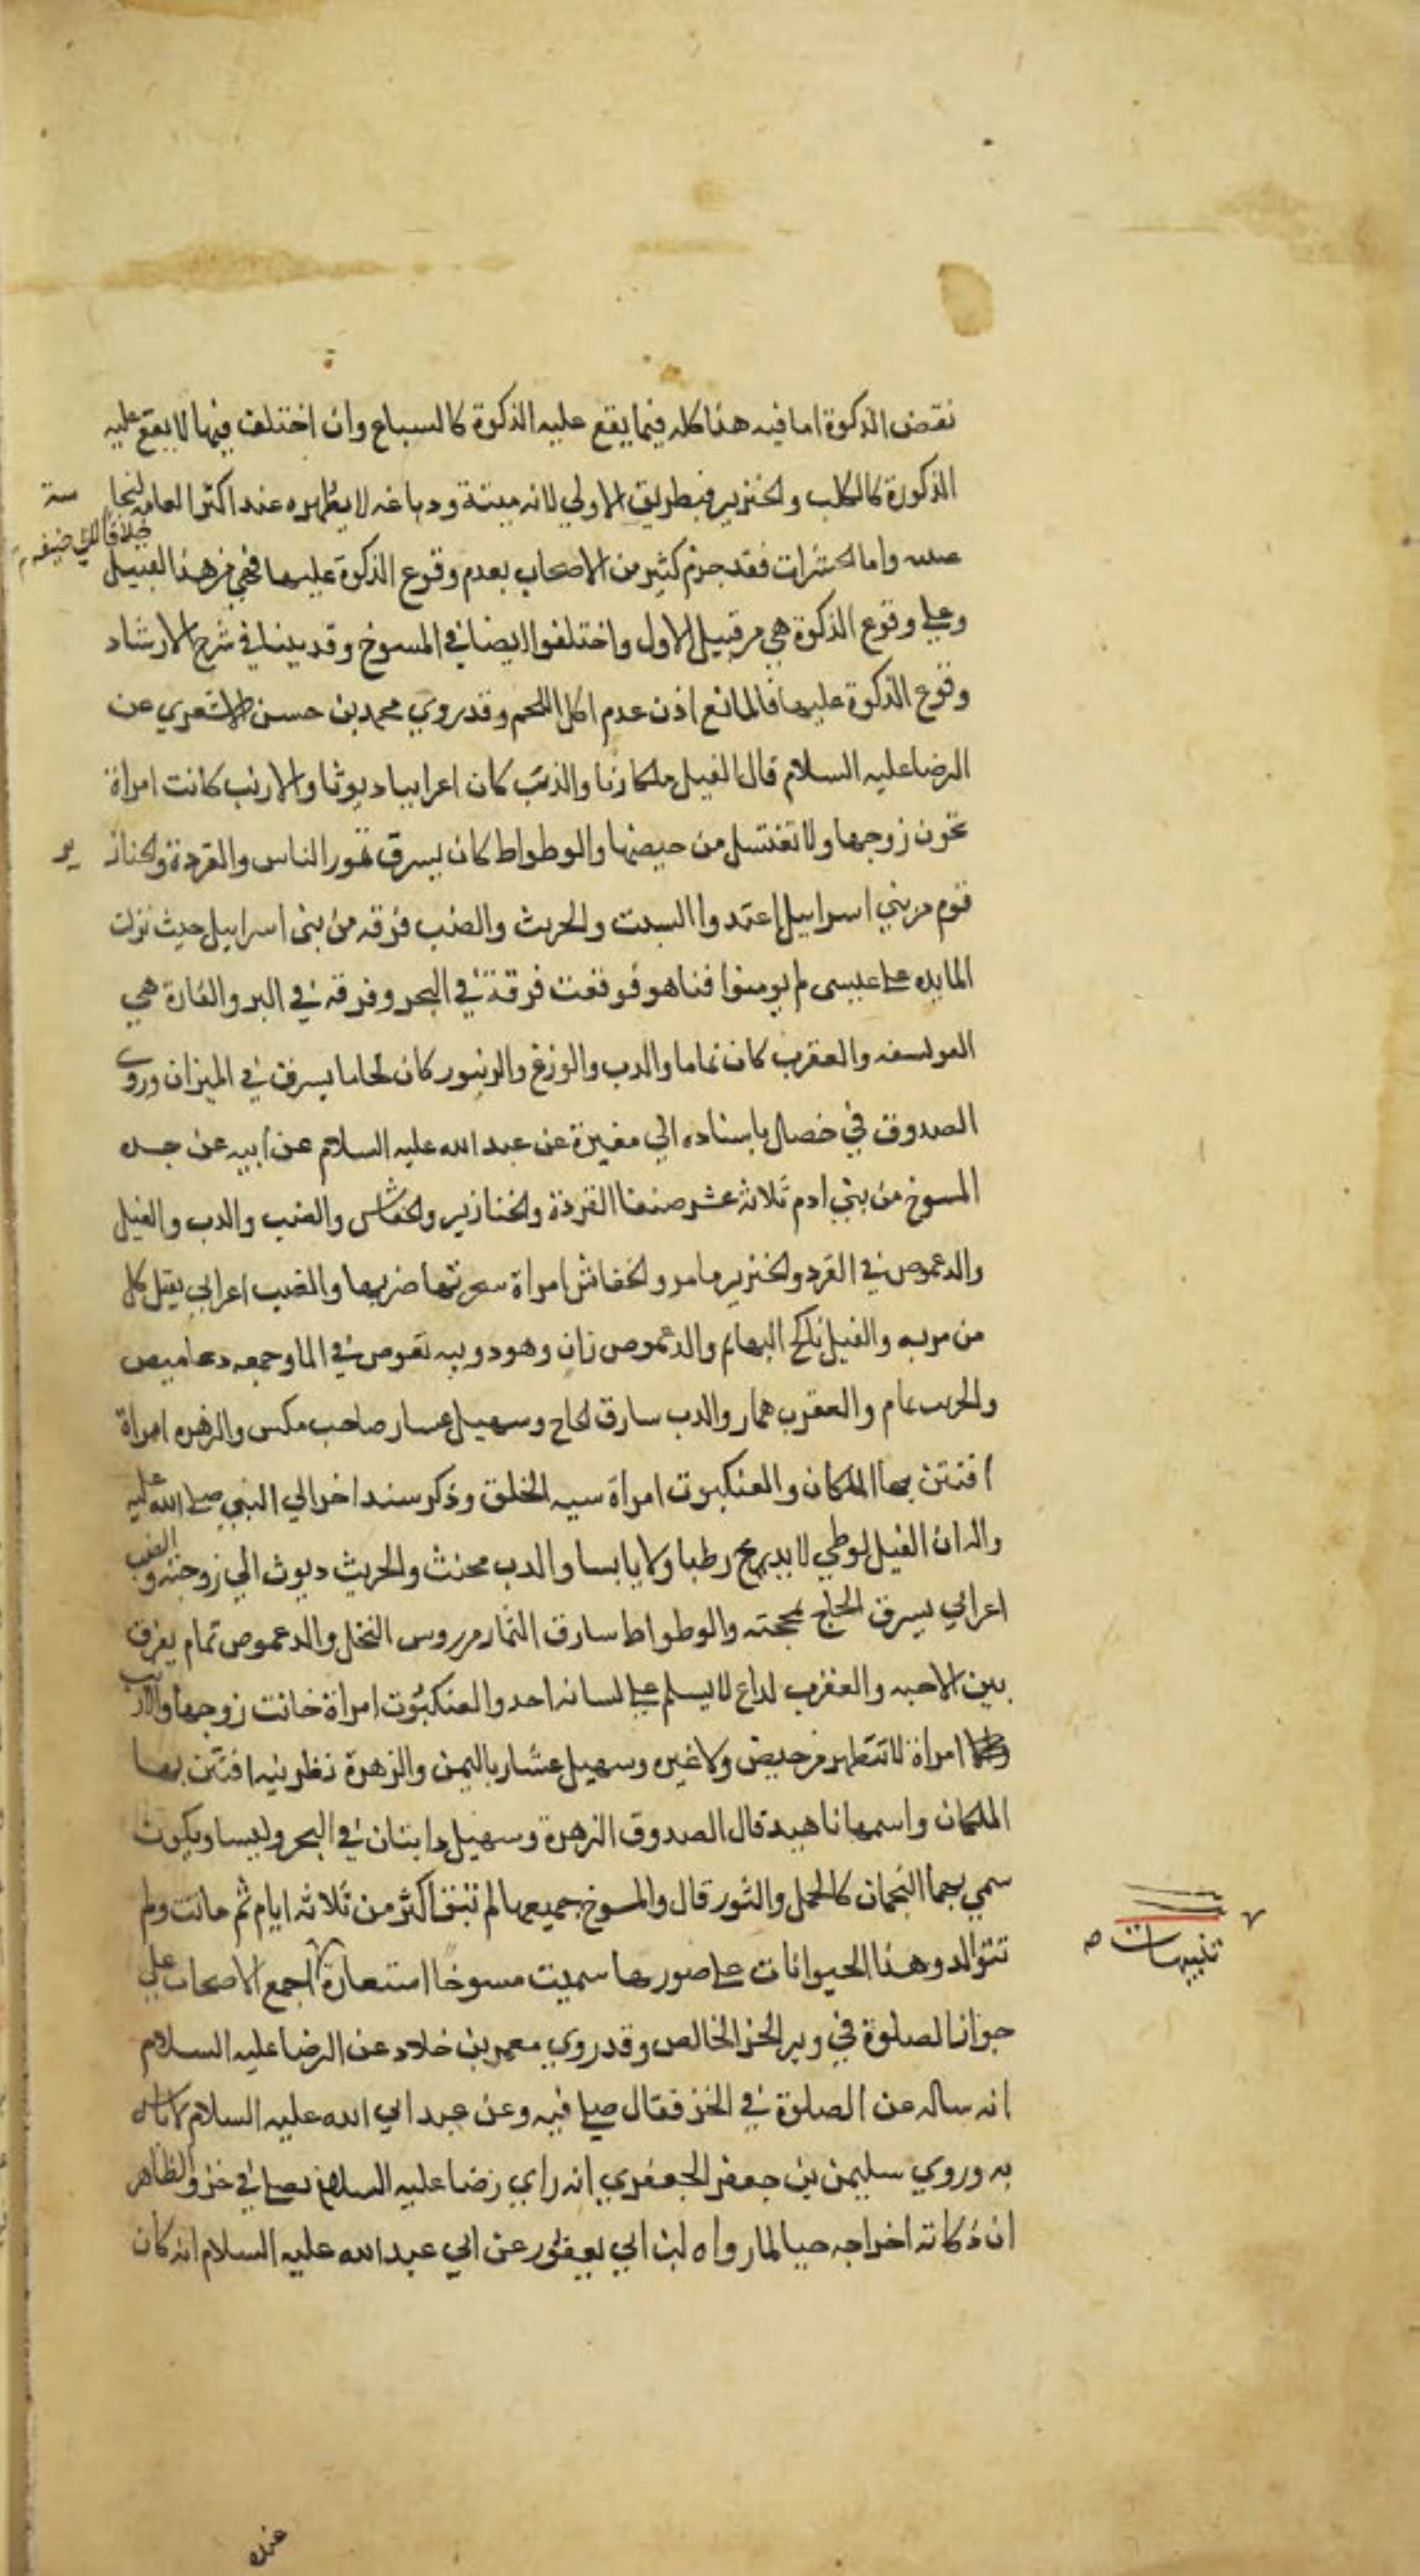 نقض الذكوة اما فيه هذا كله فيما يقع عليه الذكوة كالسباع وان اختلف فيها لا يقع عليه
الذكوة كالكلب والخنزير فبطريق الاولي لانه ميتة ودباغه لا يطهره عند اكثر العامه لنجاسة
خلافا لابي حنيفه
واما الحشرات فقد جزم كثير من الاصحاب بعدم وقوع الذكوة عليها فهي من هذا القبيل
وعلى وقوع الذكوة هي من قبيل الاول واختلفوا ايضا في المسوخ وقد بينا في شرح الارشاد
وقوع الذكوة عليها فالمانع اذن عدم اكل اللحم وقد روي محمد بن حسن الاشعري عن
الرضا عليه السلام قال الفيل ملكا زنا والذئب كان اعرابيا ديوثا والارنب كانت امراة
تخون زوجها ولا تغتسل من حيضها والوطواط كان يسرق تمور الناس والقردة والخنازير
قوم من بني اسراييل اعتدوا السبت والجريث والضب فرقه من بني اسراييل حيث نزلت
المايده على عيسى لم يومنوا فتاهو فوقعت فرقة في البحر وفرقه في البر والفارة هي
الفويسقه والعقرب كان نماما والدب والوزغ والزنبور كان لحاما يسرق في الميزان وروي
الصدوق في خصال باسناده الي مغيرة عن عبد الله عليه السلام عن ابيه عن جده
المسوخ من بني ادم ثلاثه عشر صنفا القردة والخنازير والخفاش والضب والدب والفيل
والدعموص في القرد والخنزير ما مر والخفاش امراة سحرتها ضرتها والضب اعرابي يقتل كل
من مر به والفيل ناكح البهايم والدعموص زان وهو دويبه تغوص في الما وجمعه دعاميص
والجريث نمام والعقرب همار والدب سارق الحاج وسهيل عشار صاحب مكس والزهره امراة
افتتن بها الملكان والعنكبوت امراة سيه الخلق وذكر سند اخر الي النبي صلى الله عليه
واله ان الفيل لوطي لا يدع رطبا ولا يابسا والدب مخنث والجريث ديوث الي زوجته والضب
اعرابي يسرق الحاج بمحجته والوطواط سارق الثمار من روس النخل والدعموص نمام يفرق
بين الاحبه والعقرب لداع لا يسلم على لسانه احد والعنكبوت امراة خانت زوجها والارنب
امراة لا تتطهر من حيض ولا غيره وسهيل عشار باليمن والزهرة نظرينه افتتن بها
الملكان واسمها ناهيد قال الصدوق الزهرة وسهيل دابتان في البحر وليسا ويكون
سمي بهما النجمان كالحمل والثور قال والمسوخ جميعها لم تبق اكثر من ثلاثه ايام ثم ماتت ولم
تتوالد وهذا الحيوانات على صورها سميت مسوخا استعارة اجمع الاصحاب على
تنبيهات
جواز الصلوة في وبر الخز الخالص وقد روي معمر بن خلاد عن الرضا عليه السلام
انه ساله عن الصلوة في الخز فقال صل فيه وعن عبد ابي الله عليه السلام لا باس
به وروي سليمن بن جعفر الجعفري انه راي رضا عليه السلام يصلي في خز والظاهر
ان ذكاته اخراجه حيا لما رواه ابن ابي يعفور عن ابي عبد الله عليه السلام انه كان
عنده